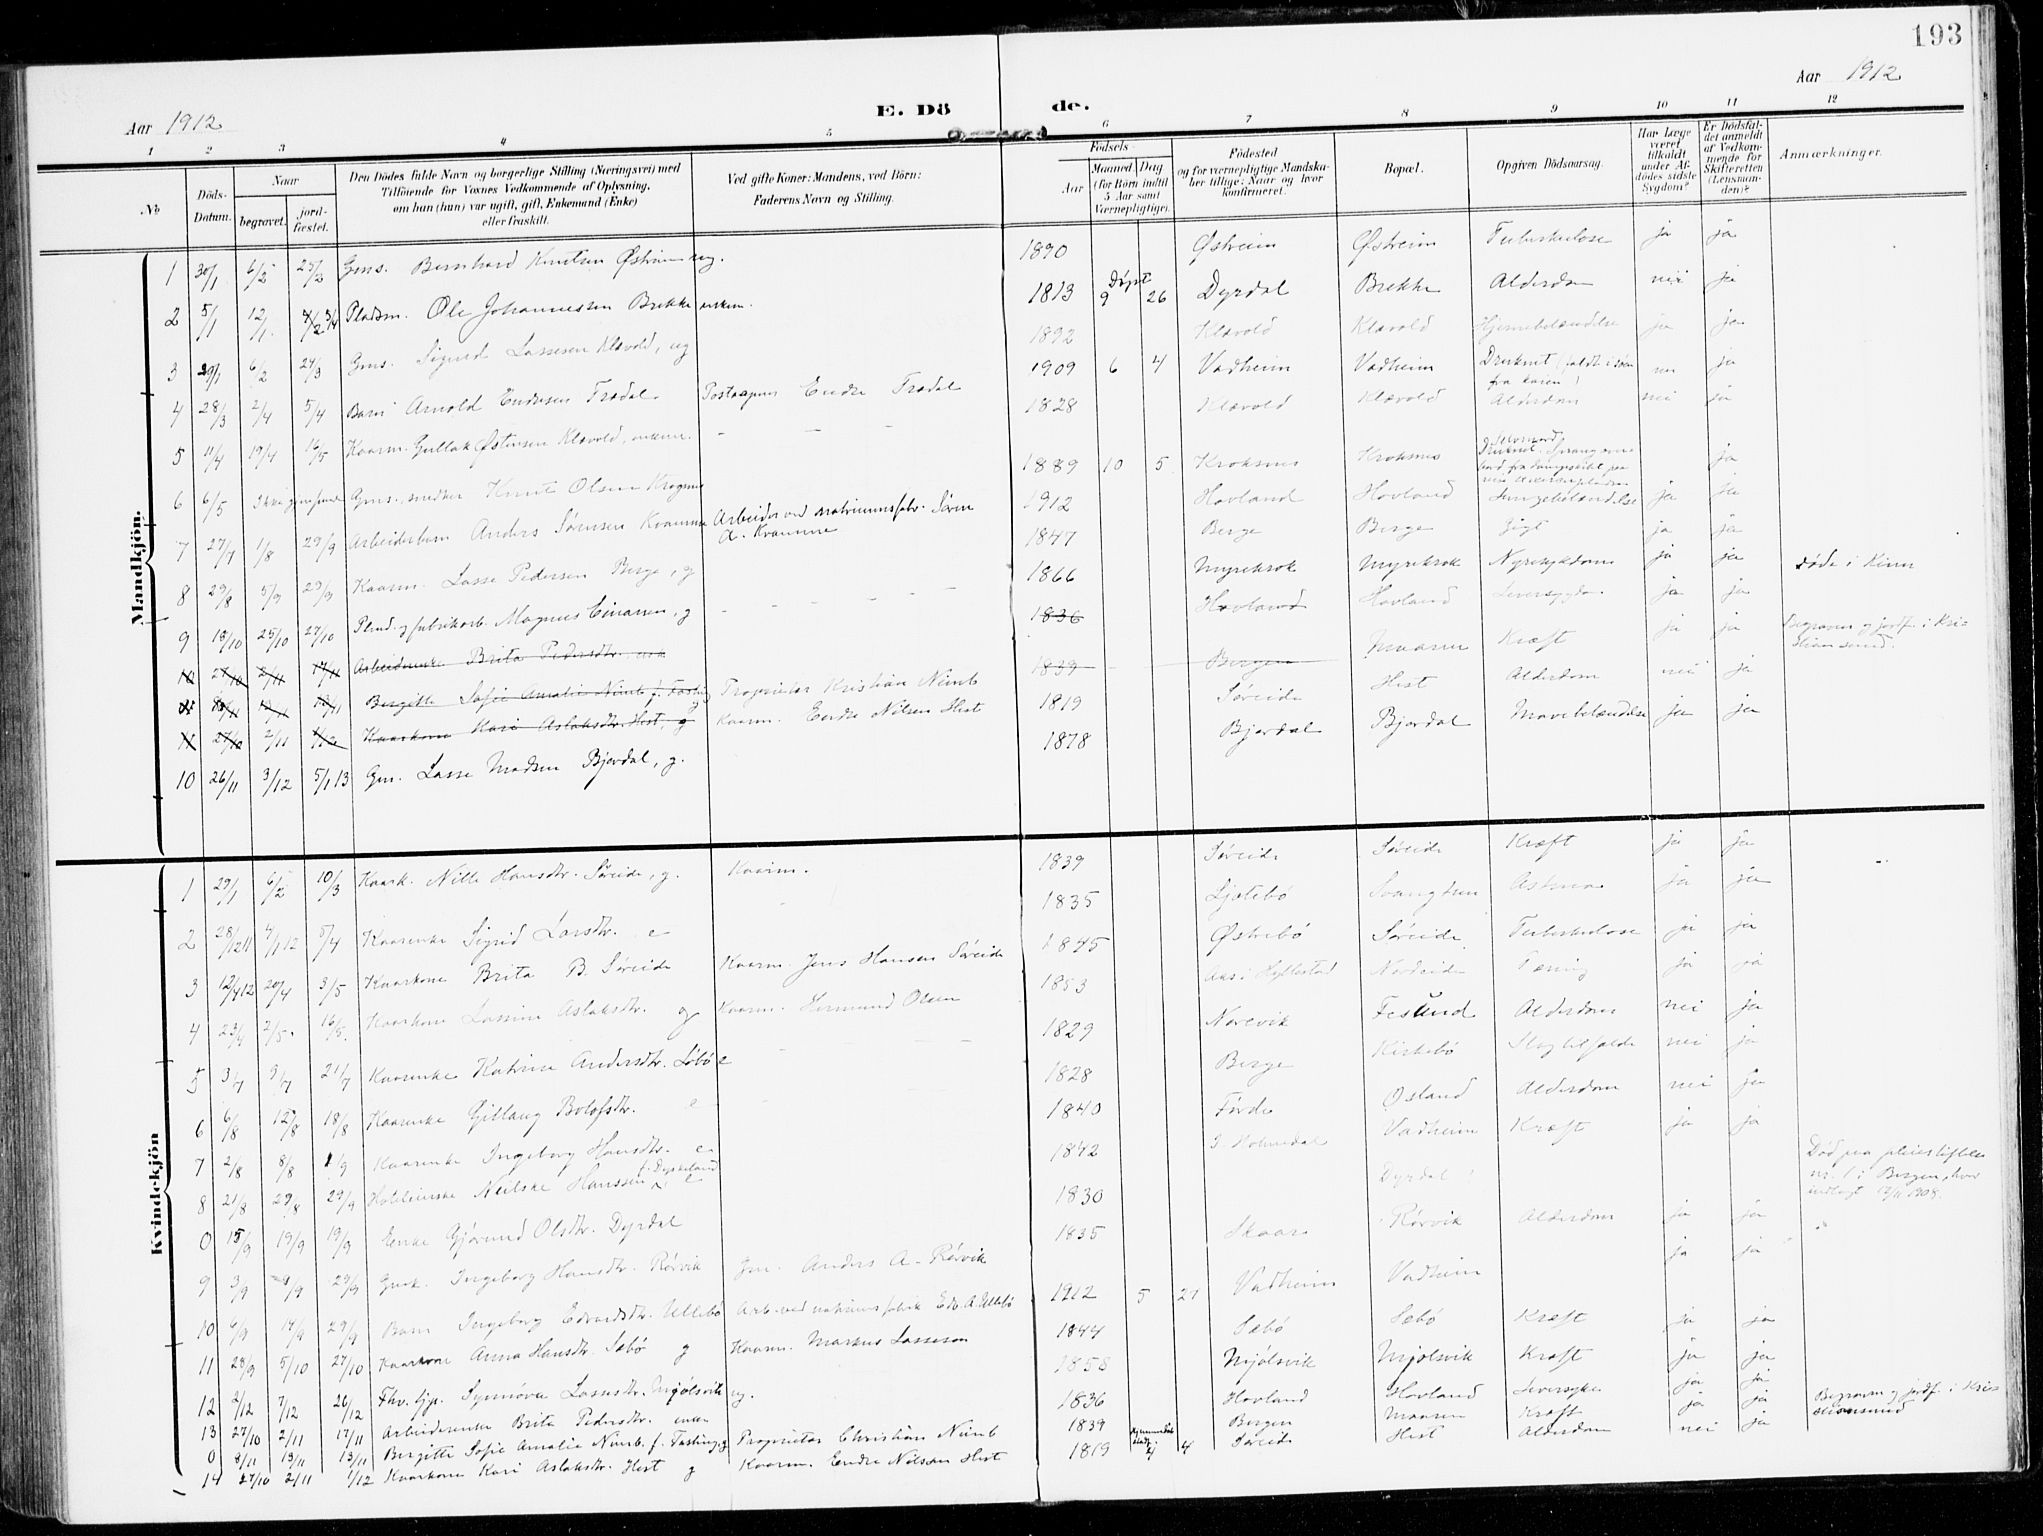 193
Aar 1912
E. Dö de.
Aar 1912
1 2 3 4 5 6 7 8 9 10 11 12
№
Döds-Datum.
Naar
begravet.
jord-fæstet.
Den Dödes fulde Navn og borgerlige Stilling (Næringsvei) med
Tilföiende for Voxnes Vedkommende af Oplysning,
om han (hun) var ugift, gift, Enkemand (Enke)
eller fraskilt.
Ved gifte Koner: Mandens, ved Börn:
Faderens Navn og Stilling.
Födsels-
Aar
Maaned
Dag
(for Börn indtil
5 Aar samt
Værnepligtige).
Födested
og for værnepligtige Mandska-
ber tillige: Naar og hvor
konfirmeret.
Bopæl.
Opgiven Dödsaarsag.
Har Læge
været
tilkaldt
under Af-
dödes sidste
Sygdom?
Er Dödsfal-
det anmeldt
af Vedkom-
mende for
Skifteretten
(Lensman-
den)?
Anmærkninger.
Mandkjön.
1 30/1 6/2 25/2 Gms. Bernhard Knutsen Østreim ug. 1890 Østreim Østreim Tuberkulose ja ja
2 5/1 12/1 Pladsm. Ole Johannessen Brekke enkem. 1813 Døpt 9 26 Dyrdal Brekke Alderdom nei ja
3 29/1 6/2 24/3 Gms. Sigurd Lassesen Klævold, ug 1892 Klævold Klævold Hjernebetændelse ja ja
4 28/3 2/4 5/4 Barn Arnold Endresen Tradal Postaapner Endre Tradal 1909 6 4 Vadheim Vadheim Druknet (faldt i søen fra kaien) ja
5 11/4 19/4 16/5 Kaarm. Gullak Østensen Klævold, enkem. 1828 Klævold Klævold Alderdom nei ja
6 6/5 Gms., snedker Knut Olsen 1889 10 5 Kroksnes Kroksnes Selvmord Druknet. ja
7 27/7 1/8 29/9 Arbeiderbarn Anders Sørensen Kvamme Arbeider ved natriumsfabr. Søren A. Kvamme 1912 Hovland Hovland Lungebetændelse ja ja
8 29/8 5/9 29/9 Kaarm. Lasse Pedersen Berge, g 1847 Berge Berge Gigt ja ja
9 18/10 25/10 27/10 Plad. og fabrikarb. Magnus Einarsen, g 1866 Myrekrok Myrekrok Nyresykdom ja ja døde i Kinn
10 27/10 2/11 17/11 Arbeiderenke Brita Pedersdtr. enk 1836 Hovland Hovland Leversygdom ja ja
Birgitte Sofie Amalie Nimb f. Fasting g Proprietær Kristian Nimb 1839 Bergen Maaren Kræft ja ja Begraven og jordf. i Kristianssund.
11 27/10 2/11 1/12 Kaarkone Kari Aslaksdtr. Hest, g Kaarm. Endre Nilsen Hest 1819 Søreide Hest Alderdom nei ja
10 26/11 3/12 5/1 13 Gm. Lasse Madsen Bjordal, g. 1878 Bjordal Bjordal Mavebetændelse ja ja
Kvindekjön
1 29/1 6/2 10/3 Kaark. Nille Hansdtr. Søreide, g. Kaarm. 1839 Søreide Søreide Kræft ja ja
2 28/12 11 4/1 12 5/4 Kaarenke Sigrid Larsdtr. e 1835 Ljotebø Svangtun Astma ja ja
3 12/4 12 20/4 3/5 Kaarkone Brita B. Søreide Kaarm. Jens Hansen Søreide 1845 Østrebø Søreide Tuberkulose ja ja
4 23/4 2/5 16/5 Kaarkone Lassine Aslaksdtr. g Kaarm. Hermund Olsen 1853 Aas i Hyllestad Nordeide Tæring ja ja
5 3/7 9/7 21/7 Kaarenke Katrine Andersdtr. Løbø e 1829 Norevik Fesund Alderdom nei ja
6 6/8 12/8 18/8 Kaarenke Gitlaug Botolfsdtr. e 1828 Berge Kirkebø Slagtilfælde nei ja
7 2/8 8/8 1/9 Kaarenke Ingeborg Hansdtr. e 1840 Førde Osland Alderdom nei ja
8 21/8 29/8 29/9 Hotelierske Neilske Hanssen f. Dyskeland e 1842 I Holmedal Vadheim Kræft ja ja
0 15/9 19/9 19/9 Enke Gjørund Olsdtr. Dyrdal 1830 Dyrdal Død paa pleiestiftelse nr. 1 i Bergen, hvor indlagt 12/11 1908.
9 3/9 9/9 29/9 Gmk. Ingeborg Hansdtr. Rørvik Gm. Anders A. Rørvik 1835 Skaar Rørvik Alderdom ja ja
10 6/9 14/9 29/9 Barn Ingeborg Edvardsdtr. Ullebø Arb. ved natriumsfabrik Edv. A. Ullebø 1912 5 27 Vadheim Vadheim ja ja
11 28/9 5/10 27/10 Kaarkone Anna Hansdtr. Sæbø g Kaarm. Markus Lassesen 1844 Sæbø Sæbø Kræft ja ja
12 2/12 7/12 26/12 Fhv. tjp. Synnøva Lassesdtr. Mjølsvik ug. 1858 Mjølsvik Mjølsvik Kræft ja ja
13 27/10 2/11 17/11 Arbeiderenke Brita Pedersdtr. enke 1836 Hovland Hovland Leversyke ja ja
0 8/11 13/11 13/11 Birgitte Sofie Amalie Nimb f. Fasting g Proprietær Christian Nimb 1839 Bergen Maaren Kræft ja ja Begraven og jordf. i Kristianssund
14 27/10 2/11 1/12 Kaarkone Kari Aslaksdtr. Hest g Kaarm. Endre Nilsen Hest 1819 4 Søreide Hest Alderdom nei ja